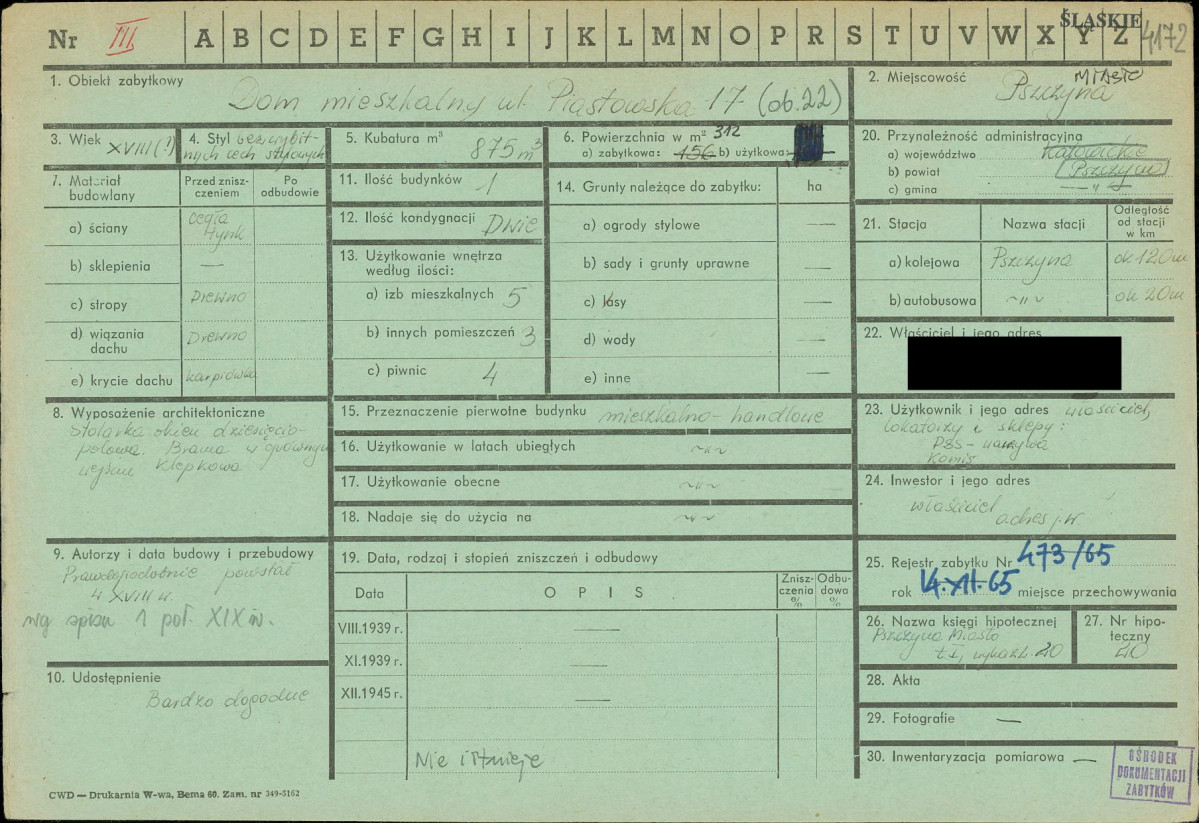 Nr III A B C D E F G H I J K L M N O P R S T U V W X Y Z
ŚLĄSKIE
4172
1. Obiekt zabytkowy
Dom mieszkalny ul. Piastowska 17 (ob. 22)
2. Miejscowość
Pszczyna
MIASTO
3. Wiek XVIII (?)
4. Styl bez wybit-
nych cech stylowych
5. Kubatura m³
875 m³
6. Powierzchnia w m² 312
a) zabytkowa: 156 b) użytkowa:
20. Przynależność administracyjna
a) województwo Katowickie
b) powiat Pszczyna
c) gmina — " —
7. Materiał
budowlany
Przed znisz-
czeniem
Po
odbudowie
a) ściany cegła
tynk
b) sklepienia —
c) stropy Drewno
d) wiązania
dachu
Drewno
e) krycie dachu karpiówka
11. Ilość budynków 1
12. Ilość kondygnacji Dwie
13. Użytkowanie wnętrza
według ilości:
a) izb mieszkalnych 5
b) innych pomieszczeń 3
c) piwnic 4
14. Grunty należące do zabytku: ha
a) ogrody stylowe —
b) sady i grunty uprawne —
c) lasy —
d) wody —
e) inne —
21. Stacja
Nazwa stacji
Odległość
od stacji
w km
a) kolejowa Pszczyna ok 120m
b) autobusowa ~"~ ok 20m
22. Właściciel i jego adres
8. Wyposażenie architektoniczne
Stolarka okien dziesięcio-
polowa. Brama w głównym
wejściu klepkowa
15. Przeznaczenie pierwotne budynku mieszkalno-handlowe
16. Użytkowanie w latach ubiegłych ~"~
17. Użytkowanie obecne ~"~
18. Nadaje się do użycia na ~"~
23. Użytkownik i jego adres właściciel,
lokatorzy i sklepy:
PSS - warzywa
Komis
24. Inwestor i jego adres
właściciel
adres j.w.
9. Autorzy i data budowy i przebudowy
Prawdopodobnie powstał
w XVIII w.
wg spisu 1 poł. XIX w.
19. Data, rodzaj i stopień zniszczeń i odbudowy
Data
OPIS
Znisz-
czenia
%
Odbu-
dowa
%
VIII.1939 r. —
XI.1939 r. —
XII.1945 r. —
Nie istnieje
25. Rejestr zabytku Nr 473/65
rok 14.XII.65 miejsce przechowywania
26. Nazwa księgi hipotecznej
Pszczyna Miasto
t. I, wykaz l. 20
27. Nr hipo-
teczny
20
10. Udostępnienie
Bardzo dogodne
28. Akta
29. Fotografie —
30. Inwentaryzacja pomiarowa —
OŚRODEK
DOKUMENTACJI
ZABYTKÓW
CWD — Drukarnia W-wa, Bema 60. Zam. nr 349-5162